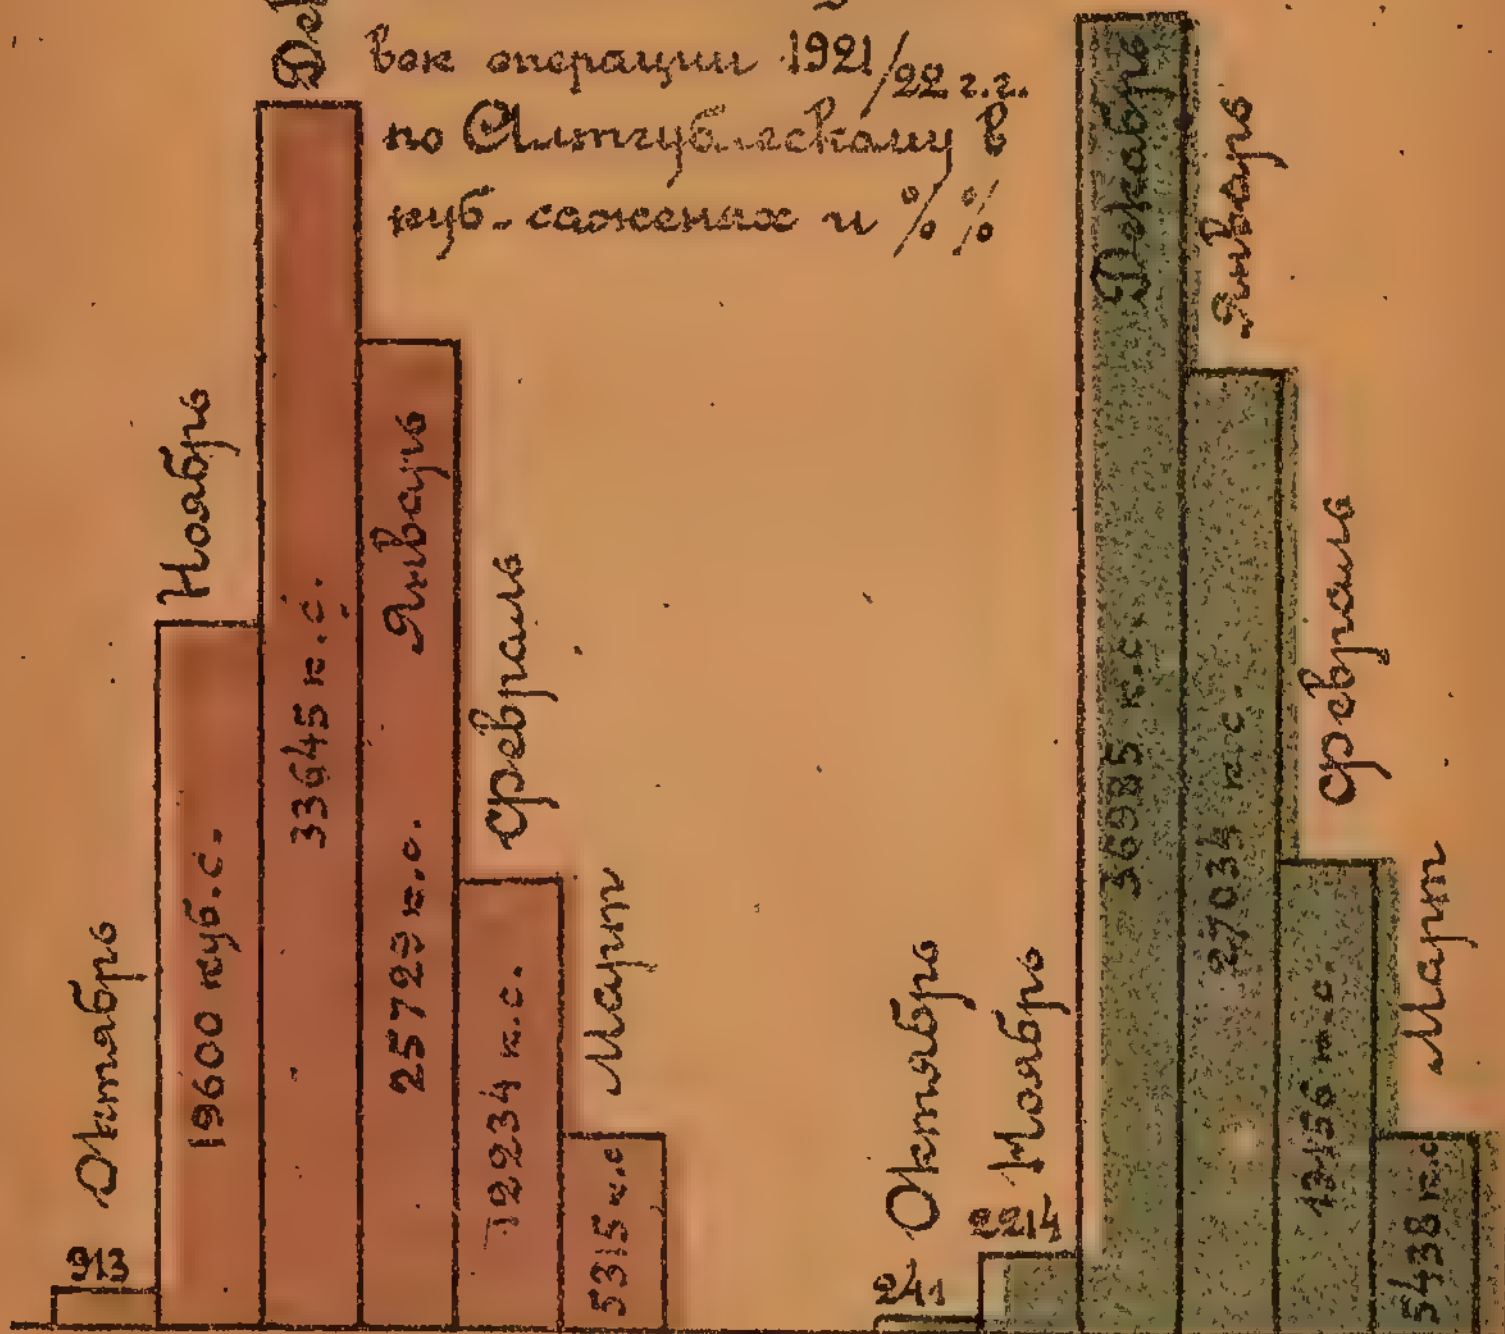 вок операции 1921/22 г.г.
по Алтгублескому в
куб. саженях и % %
Октябрь
913
Ноябрь
19600 куб. с.
33645 к.с.
Январь
25729 к.с.
Февраль
12234 к.с.
Март
5315 к.с
Октябрь
241
Ноябрь
2214
Декабрь
36985 к.с.
Январь
27034 к.с.
Февраль
к.с.
Март
5438 к.с